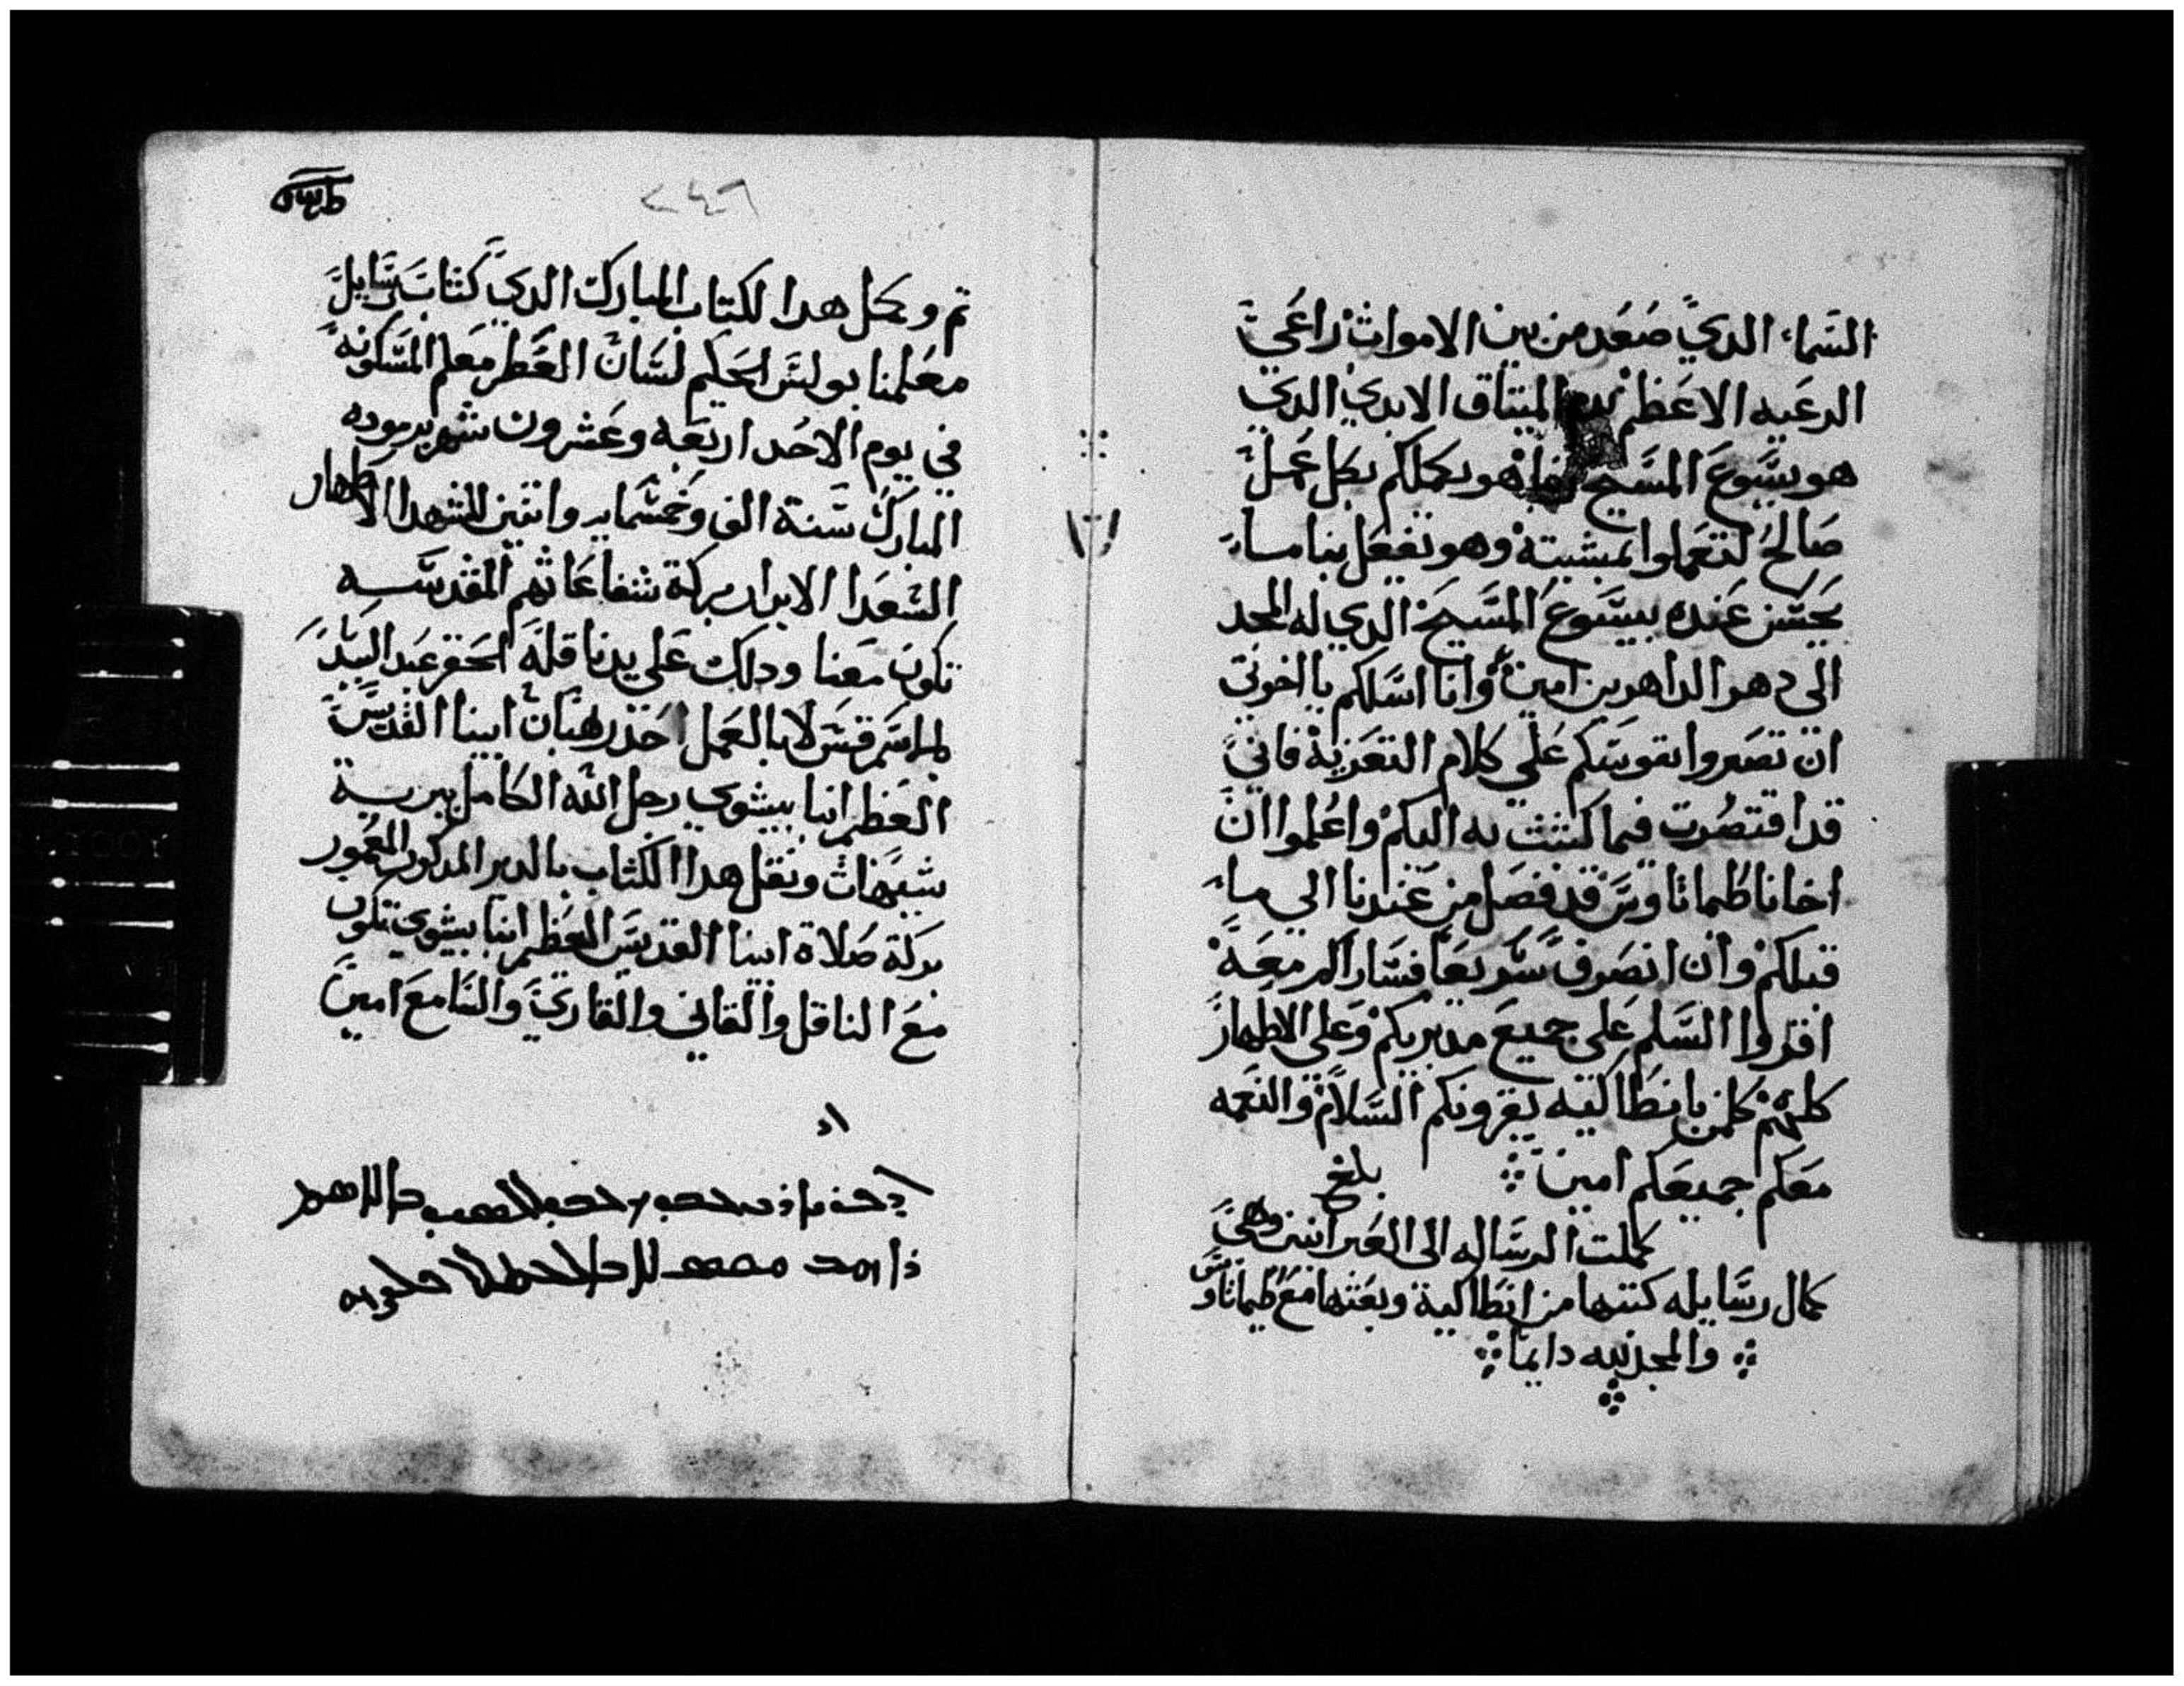 السماء الدي صعد من بين الاموات راعي
الرعيه الاعظم بدم الميتاق الابدي الدي
هو يسوع المسيح هو يكملكم بكل عمل
صالح لتعملوا بمشيته وهو يفعل بنا ما
يحسن عنده بيسوع المسيح الدي له المجد
الى دهر الداهرين امين وانا اسلكم يا اخوتي
ان تصبروا نفوسكم علي كلام التعزية فاني
قد اقتصرت فيما كتبت به اليكم واعلموا ان
اخانا طيماتاوس قد فصل من عندنا الي ما
قبلكم وان انصرف سريعا فسارا كم معه
اقروا السلم على جميع مدبريكم وعلى الاطهار
كلهم كلمن بانطاكيه يقرونكم السلام والنعمه
معكم جميعكم امين
بلغ
كملت الرساله الى العبرانيين وهي
كمال رسايله كتبها من انطاكية وبعثها مع طيماتاوس
والمجد لله دايما
٢٤٦
تم وكمل هدا الكتاب المبارك الدي كتاب رسايل
معلمنا بولس الحكيم لسان العطر معلم المسكونه
في يوم الاحد اربعه وعشرون شهر برموده
المبارك سنة الف وخمسمايه واتنين للشهدا الاطهار
السعدا الابرار بركة شفاعاتهم المقدسه
تكون معنا ودلك على يد ناقله احقر عبد
بالاسم قس لا بالعمل احد رهبان ابينا القديس
العظيم انبا بيشوي رجل الله الكامل ببرية
شيهات ونقل هدا الكتاب بالدير المدكور المعمور
بركة صلاة ابينا القديس العظيم انبا بيشوي تكون
مع الناقل والقاني والقاري والسامع امين